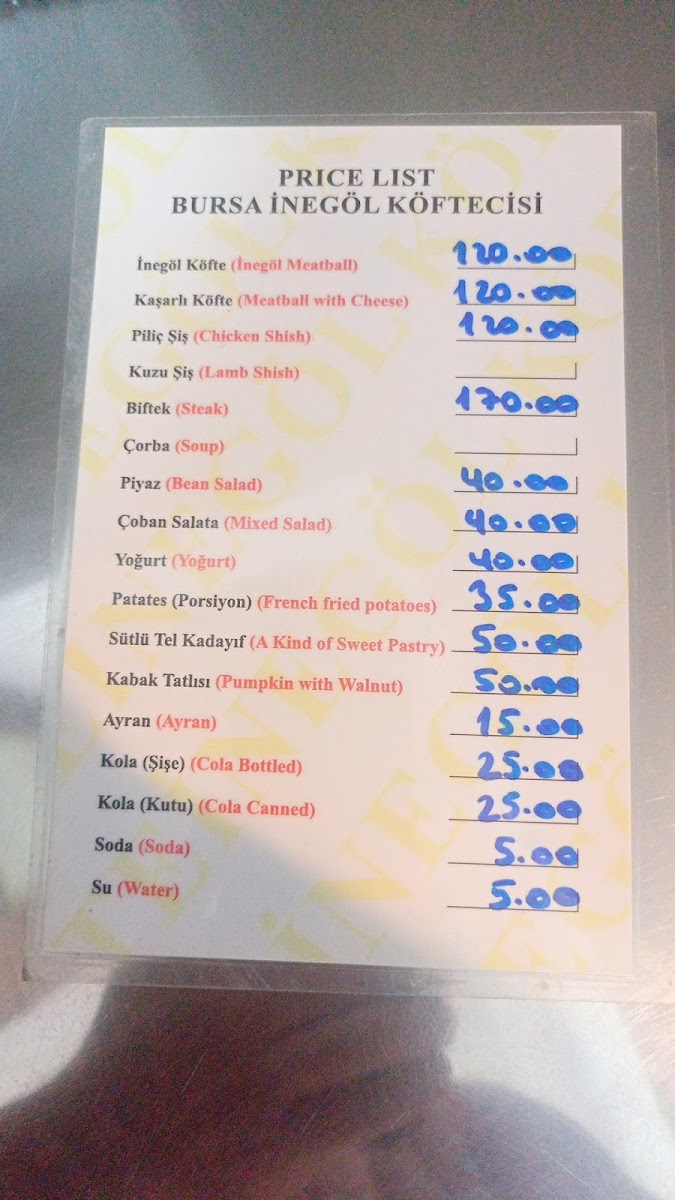 PRICE LIST
BURSA İNEGÖL KÖFTECİSİ
İnegöl Köfte (İnegöl Meatball) 120.00
Kaşarlı Köfte (Meatball with Cheese) 120.00
Piliç Şiş (Chicken Shish) 120.00
Kuzu Şiş (Lamb Shish)
Biftek (Steak) 170.00
Çorba (Soup)
Piyaz (Bean Salad) 40.00
Çoban Salata (Mixed Salad) 40.00
Yoğurt (Yoğurt) 40.00
Patates (Porsiyon) (French fried potatoes) 35.00
Sütlü Tel Kadayıf (A Kind of Sweet Pastry) 50.00
Kabak Tatlısı (Pumpkin with Walnut) 50.00
Ayran (Ayran) 15.00
Kola (Şişe) (Cola Bottled) 25.00
Kola (Kutu) (Cola Canned) 25.00
Soda (Soda) 5.00
Su (Water) 5.00